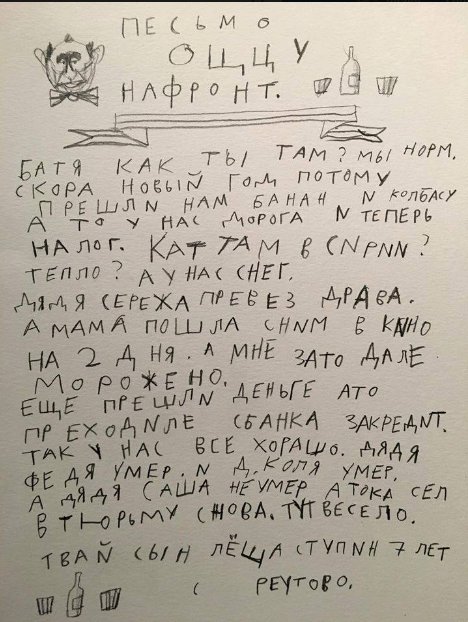 ПЕСЬМО
ОЦЦУ
НАФРОНТ.
БАТЯ КАК ТЫ ТАМ? МЫ НОРМ.
СКОРА НОВЫЙ ГОД ПОТОМУ
ПРЕШЛИ НАМ БАНАН И КОЛБАСУ
А ТО У НАС ДОРОГА И ТЕПЕРЬ
НАЛОГ. КАТ ТАМ В СИРИИ?
ТЕПЛО? А У НАС СНЕГ.
ДЯДЯ СЕРЕЖА ПРЕВЕЗ ДРАВА.
А МАМА ПОШЛА СНИМ В КИНО
НА 2 ДНЯ. А МНЕ ЗАТО ДАЛЕ
МОРОЖЕНО.
ЕЩЕ ПРЕШЛИ ДЕНЬГЕ АТО
ПРЕХОДИЛЕ СБАНКА ЗАКРЕДИТ.
ТАК У НАС ВСЕ ХОРАШО. ДЯДЯ
ФЕДЯ УМЕР. И Д. КОЛЯ УМЕР.
А ДЯДЯ САША НЕУМЕР А ТОКА СЕЛ
В ТЮРЬМУ СНОВА. ТУТ ВЕСЕЛО.
ТВАЙ СЫН ЛЁЩА СТУПИН 7 ЛЕТ
С РЕУТОВО.